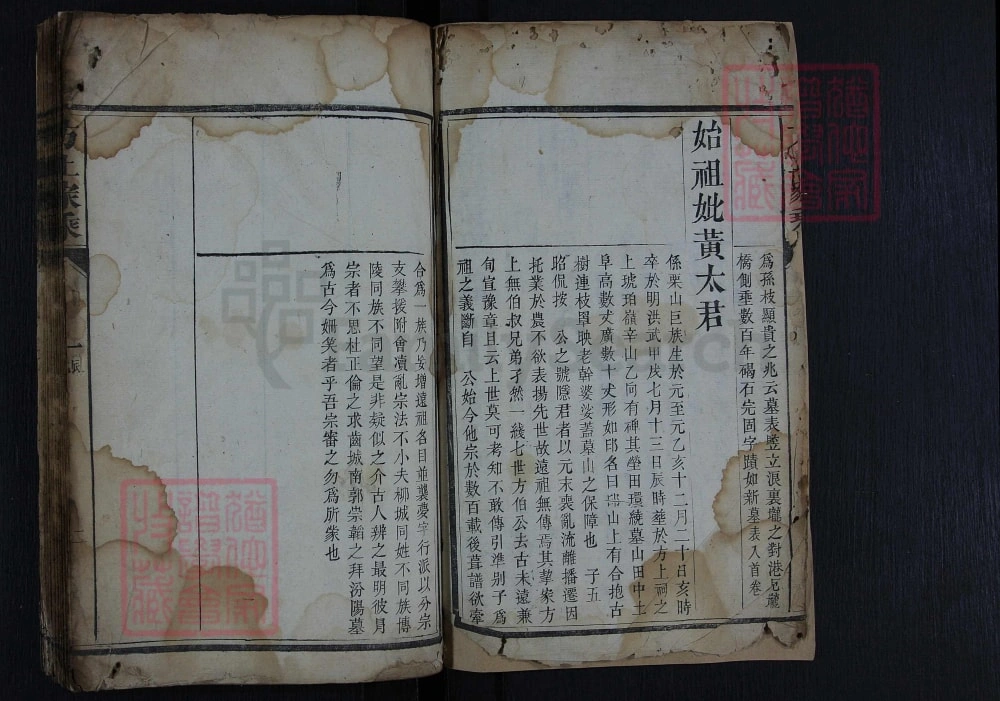 為孫枝顯貴之兆云墓表豎立浪裏壠之對港
橋側垂數百年碣石完固字蹟如新墓表入首卷
始祖妣黃太君
係栗山巨族生於元至元乙亥十二月二十日亥時
卒於明洪武甲戌七月十三日辰時塟於方上祠之
上琥珀嶺辛山乙向有碑其塋田環繞墓山田中土
阜高數丈廣數十丈形如邱名曰瑞山上有合抱古
樹連枝罩映老幹婆娑蓋墓山之保障也 子五
昭侃按 公之號隱君者以元末喪亂流離播遷因
托業於農不欲表揚先世故遠祖無傳焉其挈家方
上無伯叔兄弟孑然一綫七世方伯公去古未遠兼
旬宣豫章且云上世莫可考知不敢傳引準别子為
祖之義斷自 公始今他宗於數百載後葺譜欲牽
合為一族乃妄增遠祖名目並龔慶字行派以分宗
支攀援附會凟亂宗法不小夫柳城同姓不同族博
陵同族不同望是非疑似之介古人辨之最明彼有
宗者不思杜正倫之求齒城南郭崇韜之拜汾陽墓
為古今姍笑者乎吾宗審之勿為所紊也
上族乘